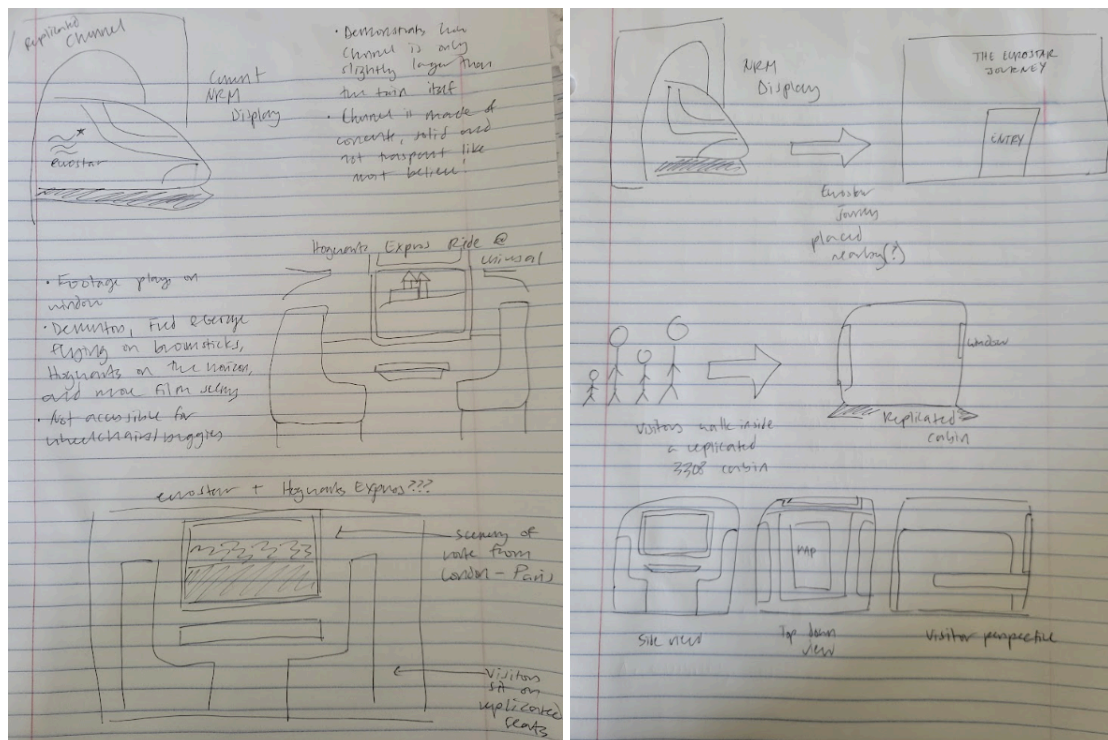 Replicated
Channel
Current
NRM
Display
eurostar
• Demonstrates how
Channel is only
slightly larger than
the train itself
• Channel is made of
concrete, solid and
not transparent like
most believe!
Hogwarts Express Ride @
Universal
• Footage plays on
window
• Dementors, Fred & George
flying on broomsticks,
Hogwarts on the horizon,
and more film scenes
• Not accessible for
wheelchairs/buggies
eurostar + Hogwarts Express???
Scenery of
route from
London - Paris
Visitors
sit on
replicated
seats
NRM
Display
THE EUROSTAR
JOURNEY
ENTRY
Eurostar
Journey
placed
nearby(?)
Visitors walk inside
a replicated
3308 cabin
window
Replicated
cabin
MAP
Side view
Top down
view
Visitor perspective